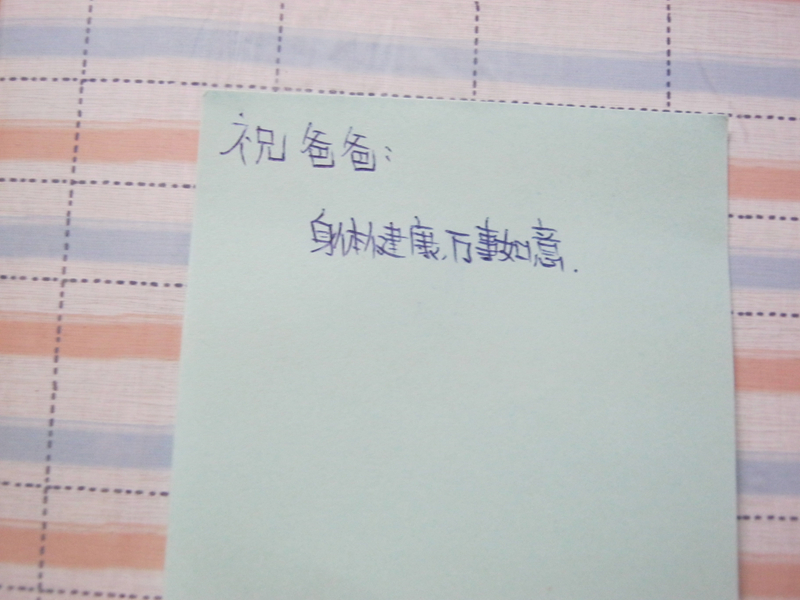 祝爸爸:
身体健康,万事如意.